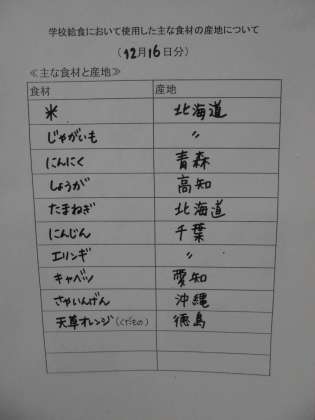 学校給食において使用した主な食材の産地について
(12月16日分)
≪主な食材と産地≫
食材 産地
米 北海道
じゃがいも 〃
にんにく 青森
しょうが 高知
たまねぎ 北海道
にんじん 千葉
エリンギ 〃
キャベツ 愛知
さやいんげん 沖縄
天草オレンジ(くだもの) 徳島